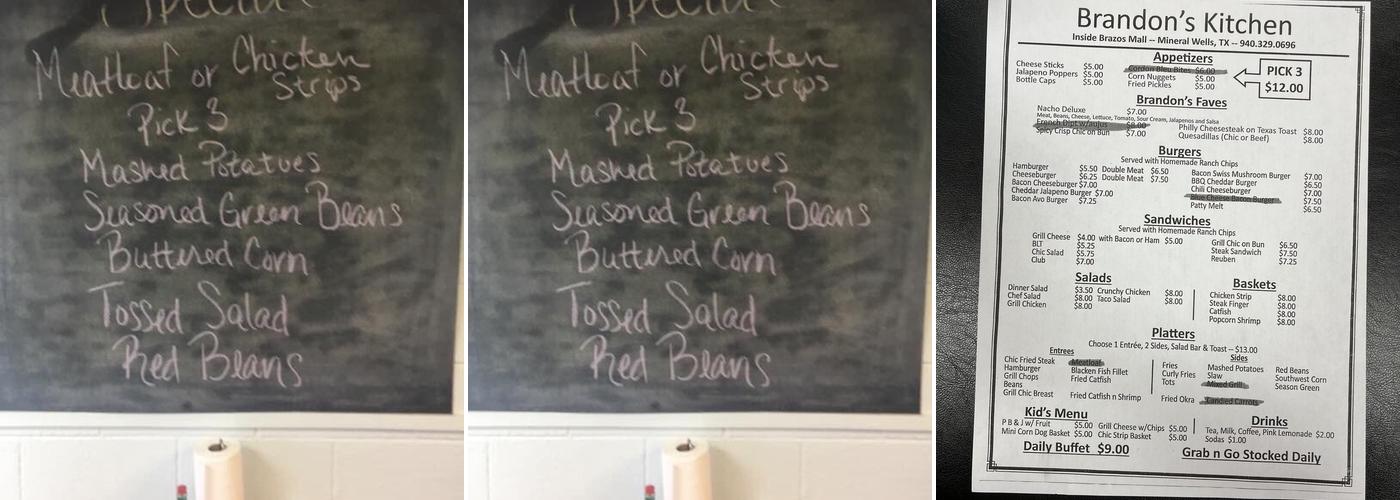 Special
Meatloaf or Chicken
Strips
Pick 3
Mashed Potatoes
Seasoned Green Beans
Buttered Corn
Tossed Salad
Red Beans
Special
Meatloaf or Chicken
Strips
Pick 3
Mashed Potatoes
Seasoned Green Beans
Buttered Corn
Tossed Salad
Red Beans
Brandon's Kitchen
Inside Brazos Mall -- Mineral Wells, TX -- 940.329.0696
Appetizers
Cheese Sticks $5.00 Cordon Bleu Bites $6.00
Jalapeno Poppers $5.00 Corn Nuggets $5.00
Bottle Caps $5.00 Fried Pickles $5.00
PICK 3
$12.00
Brandon's Faves
Nacho Deluxe $7.00
Meat, Beans, Cheese, Lettuce, Tomato, Sour Cream, Jalapenos and Salsa
French Dipt w/aujus $8.00 Philly Cheesesteak on Texas Toast $8.00
Spicy Crisp Chic on Bun $7.00 Quesadillas (Chic or Beef) $8.00
Burgers
Served with Homemade Ranch Chips
Hamburger $5.50 Double Meat $6.50 Bacon Swiss Mushroom Burger $7.00
Cheeseburger $6.25 Double Meat $7.50 BBQ Cheddar Burger $6.50
Bacon Cheeseburger $7.00 Chili Cheeseburger $7.00
Cheddar Jalapeno Burger $7.00 Blue Cheese Bacon Burger $7.50
Bacon Avo Burger $7.25 Patty Melt $6.50
Sandwiches
Served with Homemade Ranch Chips
Grill Cheese $4.00 with Bacon or Ham $5.00 Grill Chic on Bun $6.50
BLT $5.25 Steak Sandwich $7.50
Chic Salad $5.75 Reuben $7.25
Club $7.00
Salads
Dinner Salad $3.50 Crunchy Chicken $8.00
Chef Salad $8.00 Taco Salad $8.00
Grill Chicken $8.00
Baskets
Chicken Strip $8.00
Steak Finger $8.00
Catfish $8.00
Popcorn Shrimp $8.00
Platters
Choose 1 Entrée, 2 Sides, Salad Bar & Toast -- $13.00
Entrees
Chic Fried Steak Meatloaf
Hamburger Blacken Fish Fillet
Grill Chops Fried Catfish
Beans
Grill Chic Breast Fried Catfish n Shrimp
Sides
Fries Mashed Potatoes Red Beans
Curly Fries Slaw Southwest Corn
Tots Mixed Grill Season Green
Fried Okra Candied Carrots
Kid's Menu
P B & J w/ Fruit $5.00 Grill Cheese w/Chips $5.00
Mini Corn Dog Basket $5.00 Chic Strip Basket $5.00
Drinks
Tea, Milk, Coffee, Pink Lemonade $2.00
Sodas $1.00
Daily Buffet $9.00
Grab n Go Stocked Daily